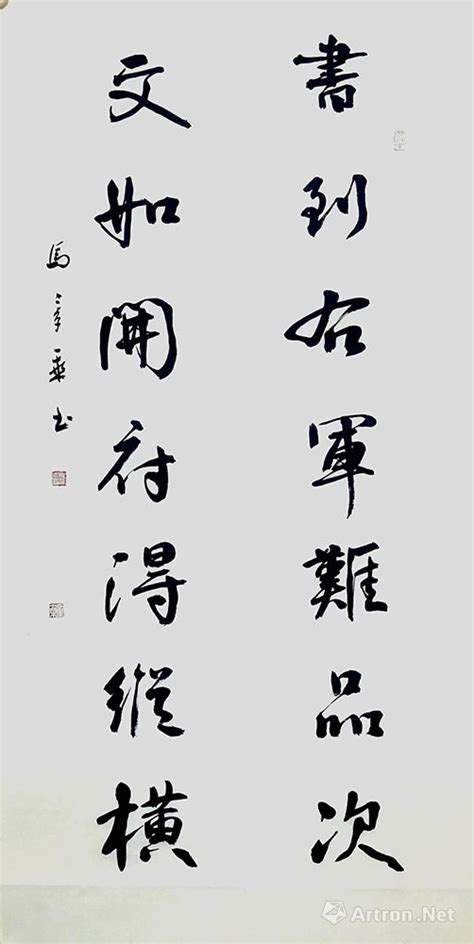 書到右軍難品次
文如開府得縱橫
Artron.Net